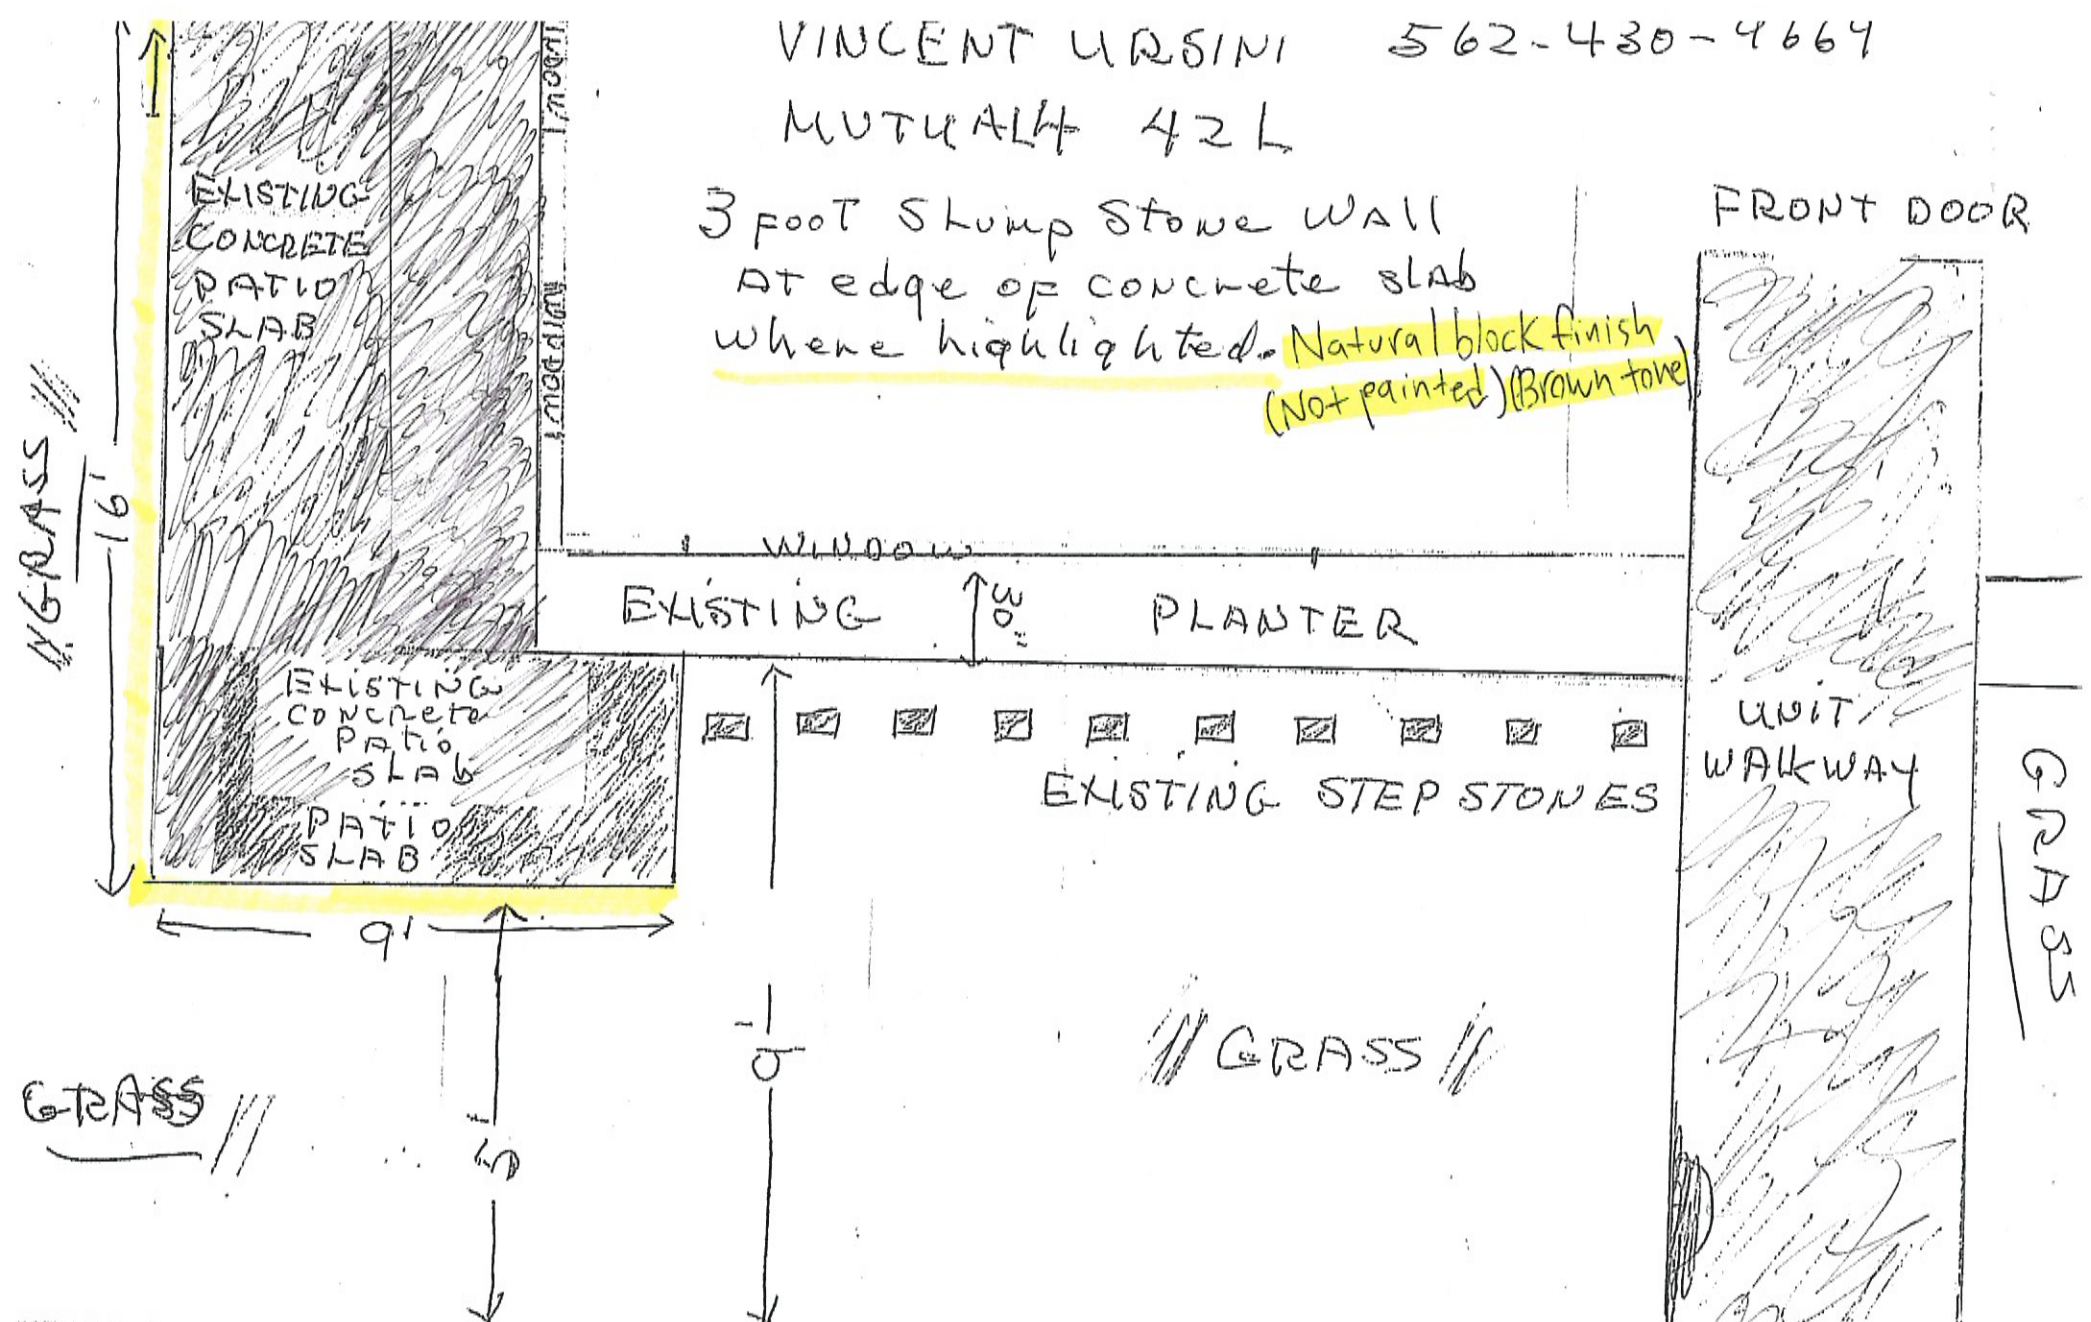 VINCENT URSINI 562-430-4664
MUTUAL 4 42L
3 FOOT Slump Stone WALL
AT edge OF concrete slAb
where highlighted. Natural block finish
(Not painted) (Brown tone)
FRONT DOOR
WINDOW
WINDOW
EXISTING
CONCRETE
PATIO
SLAB
GRASS
16'
WINDOW
EXISTING
30"
PLANTER
EXISTING
CONCRETE
PATIO
SLAb
PATIO
SLAB
EXISTING STEP STONES
UNIT
WALKWAY
GRASS
9'
9'
GRASS
GRASS
5'